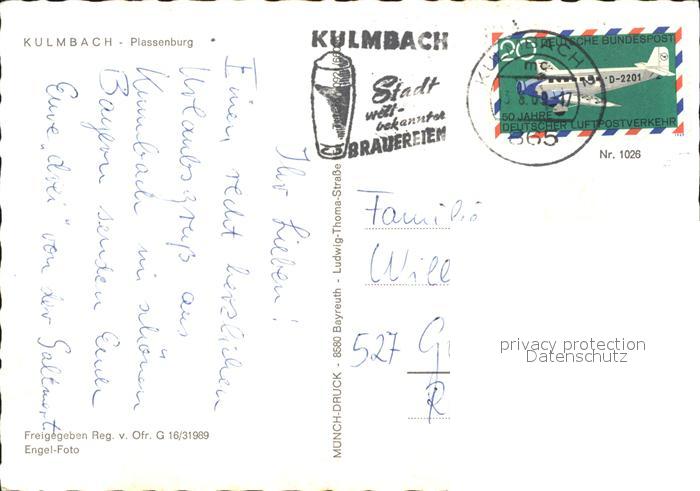 KULMBACH - Plassenburg
Ihr Lieben!
Einen recht herzlichen
Urlaubsgruß aus
Kulmbach im schönen
Bayern senden Euch
Eure "drei" von der
Freigegeben Reg. v. Ofr. G 16/31989
Engel-Foto
MÜNCH-DRUCK - 8580 Bayreuth - Ludwig-Thoma-Straße
KULMBACH
Stadt
welt-
bekannter
BRAUEREIEN
KULMBACH
mc
865
20 DEUTSCHE BUNDESPOST
D-2201
50 JAHRE
DEUTSCHER LUFTPOSTVERKEHR
Nr. 1026
Familie
Will
527 G
R
privacy protection
Datenschutz